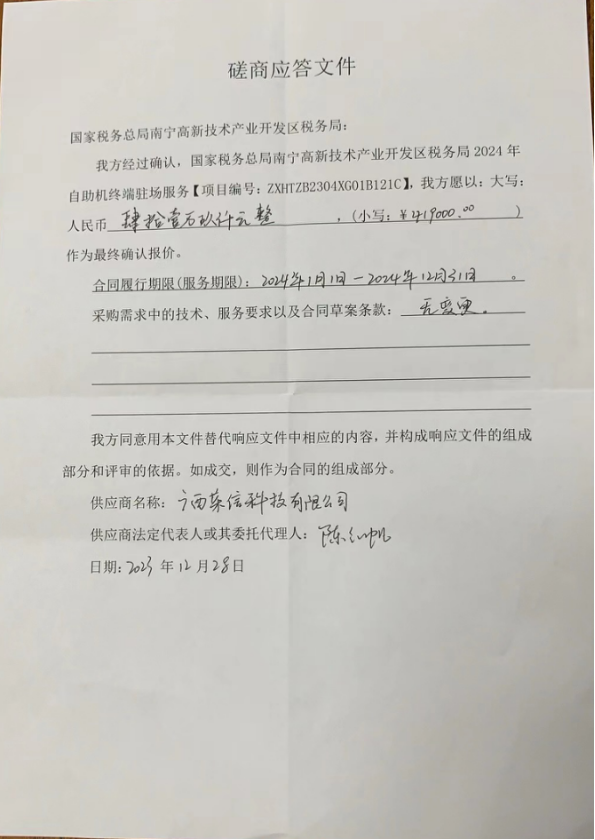 磋商应答文件
国家税务总局南宁高新技术产业开发区税务局：
我方经过确认，国家税务总局南宁高新技术产业开发区税务局 2024 年
自助机终端驻场服务【项目编号：ZXHTZB2304XG01B121C】，我方愿以：大写：
人民币 肆拾壹万玖仟元整 ，（小写：￥419000.00 ）
作为最终确认报价。
合同履行期限(服务期限)：2024年1月1日－2024年12月31日 。
采购需求中的技术、服务要求以及合同草案条款：无变更。
我方同意用本文件替代响应文件中相应的内容，并构成响应文件的组成
部分和评审的依据。如成交，则作为合同的组成部分。
供应商名称：广西荣信科技有限公司
供应商法定代表人或其委托代理人：陈
日期：2023 年 12 月 28 日